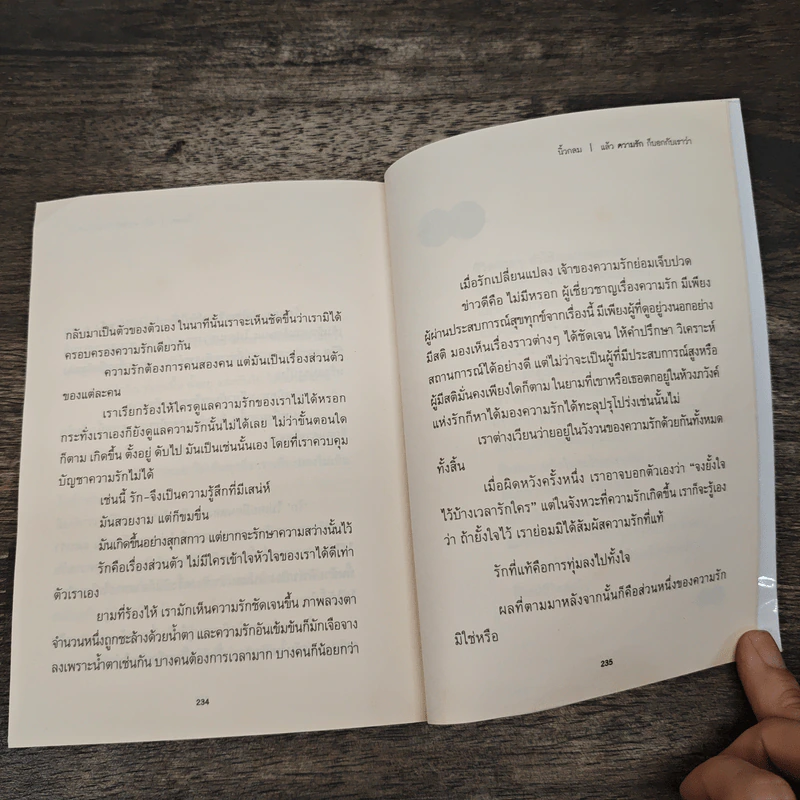 กลับมาเป็นตัวของตัวเอง ในนาทีนั้นเราจะเห็นชัดขึ้นว่าเรามิได้
ครอบครองความรักเดียวกัน
ความรักต้องการคนสองคน แต่มันเป็นเรื่องส่วนตัว
ของแต่ละคน
เราเรียกร้องให้ใครดูแลความรักของเราไม่ได้หรอก
กระทั่งเราเองก็ยังดูแลความรักนั้นไม่ได้เลย ไม่ว่าขั้นตอนใด
ก็ตาม เกิดขึ้น ตั้งอยู่ ดับไป มันเป็นเช่นนั้นเอง โดยที่เราควบคุม
บัญชาความรักไม่ได้
เช่นนี้ รัก-จึงเป็นความรู้สึกที่มีเสน่ห์
มันสวยงาม แต่ก็ขมขื่น
มันเกิดขึ้นอย่างสุกสกาว แต่ยากจะรักษาความสว่างนั้นไว้
รักคือเรื่องส่วนตัว ไม่มีใครเข้าใจหัวใจของเราได้ดีเท่า
ตัวเราเอง
ยามที่ร้องไห้ เรามักเห็นความรักชัดเจนขึ้น ภาพลวงตา
จำนวนหนึ่งถูกชะล้างด้วยน้ำตา และความรักอันเข้มข้นก็มักเจือจาง
ลงเพราะน้ำตาเช่นกัน บางคนต้องการเวลามาก บางคนก็น้อยกว่า
234
นิ้วกลม | แล้ว ความรัก ก็บอกกับเราว่า
เมื่อรักเปลี่ยนแปลง เจ้าของความรักย่อมเจ็บปวด
ข่าวดีคือ ไม่มีหรอก ผู้เชี่ยวชาญเรื่องความรัก มีเพียง
ผู้ผ่านประสบการณ์สุขทุกข์จากเรื่องนี้ มีเพียงผู้ที่ดูอยู่วงนอกอย่าง
มีสติ มองเห็นเรื่องราวต่างๆ ได้ชัดเจน ให้คำปรึกษา วิเคราะห์
สถานการณ์ได้อย่างดี แต่ไม่ว่าจะเป็นผู้ที่มีประสบการณ์สูงหรือ
ผู้มีสติมั่นคงเพียงใดก็ตาม ในยามที่เขาหรือเธอตกอยู่ในห้วงภวังค์
แห่งรักก็หาได้มองความรักได้ทะลุปรุโปร่งเช่นนั้นไม่
เราต่างเวียนว่ายอยู่ในวังวนของความรักด้วยกันทั้งหมด
ทั้งสิ้น
เมื่อผิดหวังครั้งหนึ่ง เราอาจบอกตัวเองว่า “จงยั้งใจ
ไว้บ้างเวลารักใคร” แต่ในจังหวะที่ความรักเกิดขึ้น เราก็จะรู้เอง
ว่า ถ้ายั้งใจไว้ เราย่อมมิได้สัมผัสความรักที่แท้
รักที่แท้คือการทุ่มลงไปทั้งใจ
ผลที่ตามมาหลังจากนั้นก็คือส่วนหนึ่งของความรัก
มิใช่หรือ
235